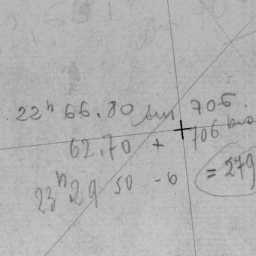 22h 66.80 706.
62.70 + 706
23h 29 50 - 6 = 279